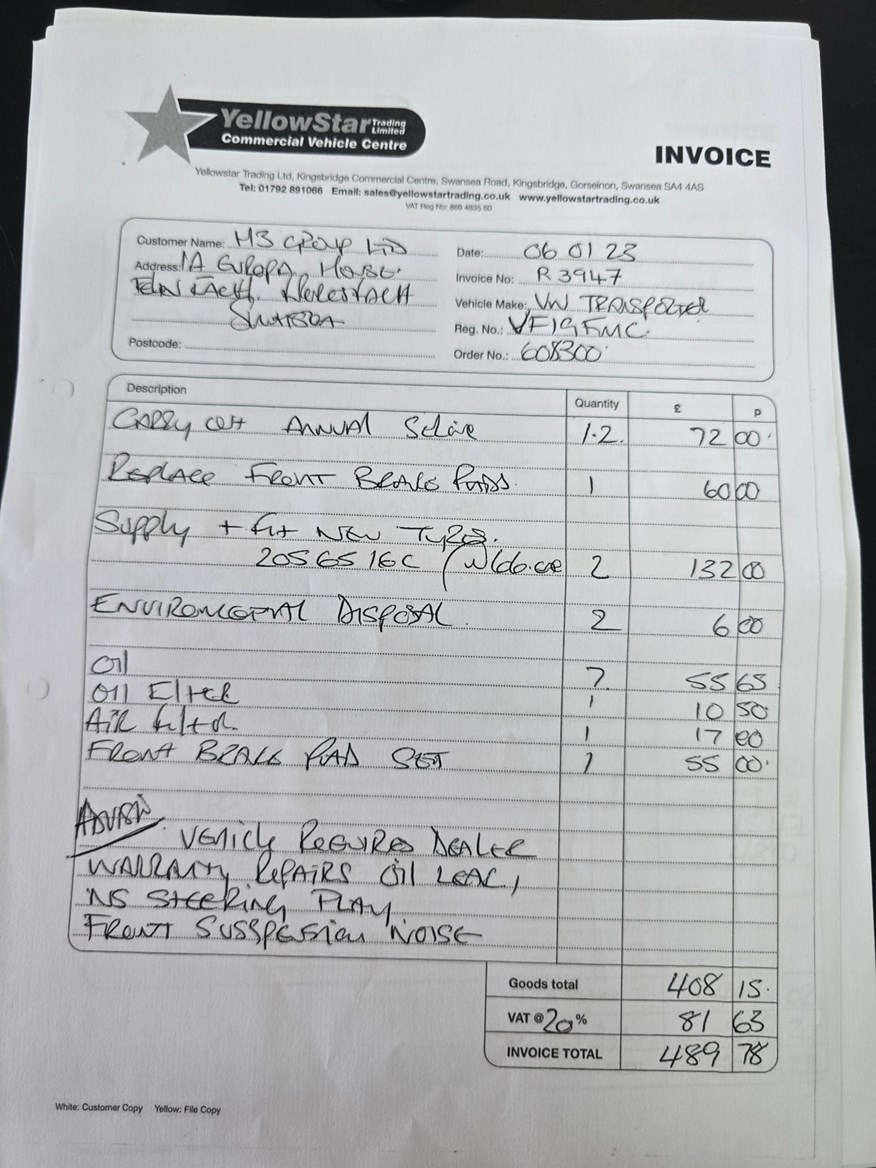 YellowStar Trading Limited
Commercial Vehicle Centre
INVOICE
Yellowstar Trading Ltd, Kingsbridge Commercial Centre, Swansea Road, Kingsbridge, Gorseinon, Swansea SA4 4AS
Tel: 01792 891066 Email: sales@yellowstartrading.co.uk www.yellowstartrading.co.uk
VAT Reg No:
Customer Name: M3 Group LTD
Address: 1A EUROPA HOUSE
SWANSEA
Postcode:
Date: 06 01 23
Invoice No: R 3947
Vehicle Make: VW TRANSPORTER
Reg. No.: VF19FMC
Order No.: 608300
Description Quantity £ p
CARRY OUT ANNUAL Service 1.2. 72 00
REPLACE FRONT BRAKE PADS. 1 60 00
Supply + fit NEW Tyres.
205 65 16C 2 132 00
ENVIROMENTAL DISPOSAL. 2 6 00
Oil 7 55 65
Oil Filter 1 10 50
AIR filter 1 17 00
FRONT BRAKE PAD SET 1 55 00
ADVISE VEHICLE REQUIRES DEALER
WARRANTY REPAIRS OIL LEAK,
NS STEERING PLAY,
FRONT SUSSPESION NOISE
Goods total 408 15
VAT @ 20 % 81 63
INVOICE TOTAL 489 78
White: Customer Copy Yellow: File Copy